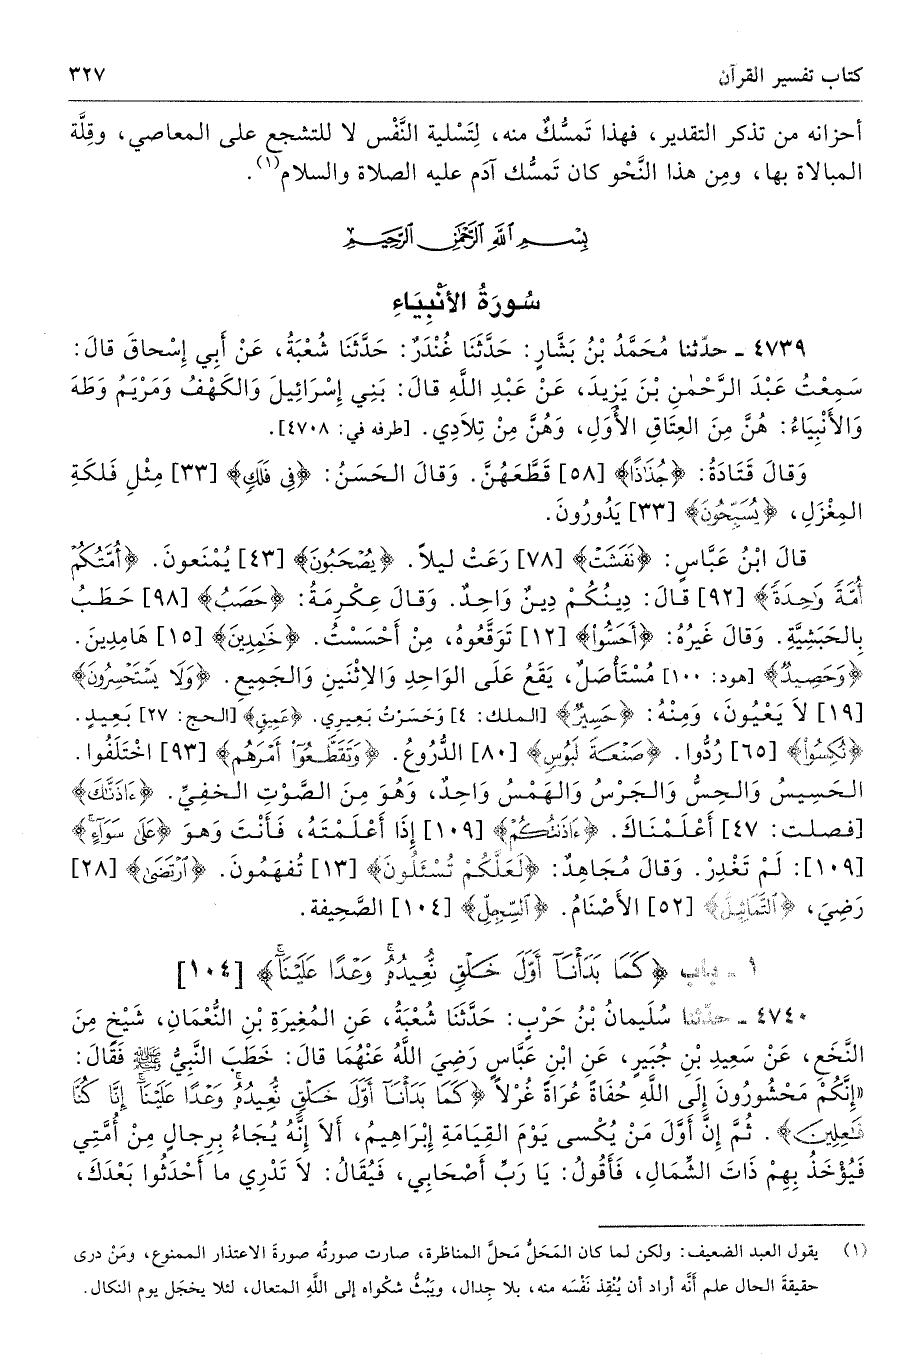 كتاب تفسير القرآن ٣٢٧
أحزانه من تذكر التقدير، فهذا تَمسُّكٌ منه، لِتَسْلية النَّفْس لا للتشجع على المعاصي، وقِلَّة
المبالاة بها، ومِن هذا النَّحْو كان تَمسُّك آدَم عليه الصلاة والسلام(١).
بِسْمِ اللَّهِ الرَّحْمَٰنِ الرَّحِيمِ
سُورَةُ الأَنْبِيَاءِ
٤٧٣٩ ـ حدّثنا مُحَمَّدُ بْنُ بَشَّارٍ: حَدَّثَنَا غُنْدَرٌ: حَدَّثَنَا شُعْبَةُ، عَنْ أَبِي إِسْحاقَ قالَ:
سَمِعْتُ عَبْدَ الرَّحْمٰنِ بْنَ يَزِيدَ، عَنْ عَبْدِ اللَّهِ قالَ: بَنِي إِسْرَائِيلَ وَالكَهْفُ وَمَرْيَمُ وَطَهَ
وَالأَنْبِيَاءُ: هُنَّ مِنَ العِتَاقِ الأُوَلِ، وَهُنَّ مِنْ تِلاَدِي. [طرفه في: ٤٧٠٨].
وَقالَ قَتَادَةُ: ﴿جُذَٰذًا﴾ [٥٨] قَطَّعَهُنَّ. وَقالَ الحَسَنُ: ﴿فِي فَلَكٍ﴾ [٣٣] مِثْلِ فَلكَةِ
المِغْزَلِ، ﴿يَسْبَحُونَ﴾ [٣٣] يَدُورُونَ.
قالَ ابْنُ عَبَّاسٍ: ﴿نَفَشَتْ﴾ [٧٨] رَعَتْ ليلاً. ﴿يُصْحَبُونَ﴾ [٤٣] يُمْنَعونَ. ﴿أُمَّتُكُمْ
أُمَّةً وَٰحِدَةً﴾ [٩٢] قالَ: دِينُكُمْ دِينٌ وَاحِدٌ. وَقالَ عِكْرِمَةُ: ﴿حَصَبُ﴾ [٩٨] حَطَبُ
بِالحَبَشِيَّةِ. وَقالَ غَيرُهُ: ﴿أَحَسُّواْ﴾ [١٢] تَوَقَّعُوهُ، مِنْ أَحْسَسْتُ. ﴿خَٰمِدِينَ﴾ [١٥] هَامِدِينَ.
﴿وَحَصِيدٌ﴾ [هود: ١٠٠] مُسْتَأْصَلٌ، يَقَعُ عَلَى الوَاحِدِ وَالاِثْنَينِ وَالجَمِيعِ. ﴿وَلَا يَسْتَحْسِرُونَ﴾
[١٩] لاَ يَعْيُونَ، وَمِنْهُ: ﴿حَسِيرٌ﴾ [الملك: ٤] وَحَسَرْتُ بَعِيرِي. ﴿عَمِيقٍ﴾ [الحج: ٢٧] بَعِيدٍ.
﴿نُكِسُواْ﴾ [٦٥] رُدُّوا. ﴿صَنْعَةَ لَبُوسٍ﴾ [٨٠] الدُّرُوعُ. ﴿وَتَقَطَّعُوٓاْ أَمْرَهُم﴾ [٩٣] اخْتَلَفُوا.
الحَسِيسُ وَالحِسُّ وَالجَرْسُ وَالهَمْسُ وَاحِدٌ، وَهُوَ مِنَ الصَّوْتِ الخفِيِّ. ﴿ءَاذَنَّٰكَ﴾
[فصلت: ٤٧] أَعْلَمْنَاكَ. ﴿ءَاذَنتُكُمْ﴾ [١٠٩] إِذَا أَعْلَمْتَهُ، فَأَنْتَ وَهوَ ﴿عَلَىٰ سَوَآءٍ﴾
[١٠٩]: لَمْ تَغْدِرْ. وَقالَ مُجَاهِدٌ: ﴿لَعَلَّكُمْ تُسْـَٔلُونَ﴾ [١٣] تُفهَمُونَ. ﴿ٱرْتَضَىٰ﴾ [٢٨]
رَضِيَ، ﴿ٱلتَّمَاثِيلُ﴾ [٥٢] الأَصْنَامُ. ﴿ٱلسِّجِلِّ﴾ [١٠٤] الصَّحِيفة.
١ ـ باب ﴿كَمَا بَدَأْنَآ أَوَّلَ خَلْقٍ نُّعِيدُهُۥ وَعْدًا عَلَيْنَآ﴾ [١٠٤]
٤٧٤٠ ـ حدّثنا سُلَيمانُ بْنُ حَرْبٍ: حَدَّثَنَا شُعْبَةُ، عَنِ المُغِيرَةِ بْنِ النُّعْمَانِ، شَيْخٍ مِنَ
النَّخَعِ، عَنْ سَعِيدِ بْنِ جُبَيرٍ، عَنِ ابْنِ عَبَّاسٍ رَضِيَ اللَّهُ عَنْهُمَا قالَ: خَطَبَ النَّبِيُّ ﷺ فَقَالَ:
«إِنَّكُمْ مَحْشُورُونَ إِلَى اللَّهِ حُفَاةً عُرَاةً غُرْلاً ﴿كَمَا بَدَأْنَآ أَوَّلَ خَلْقٍ نُّعِيدُهُۥ وَعْدًا عَلَيْنَآ إِنَّا كُنَّا
فَٰعِلِينَ﴾. ثُمَّ إِنَّ أَوَّلَ مَنْ يُكْسى يَوْمَ القِيَامَةِ إِبْرَاهِيمُ، أَلاَ إِنَّهُ يُجَاءُ بِرِجالٍ مِنْ أُمَّتِي
فَيُؤْخَذُ بِهِمْ ذَاتَ الشِّمَالِ، فَأَقُولُ: يَا رَبِّ أَصْحَابِي، فَيُقَالُ: لاَ تَدْرِي ما أَحْدَثُوا بَعْدَكَ،
(١) يقول العبد الضعيف: ولكن لما كان المَحَلُّ مَحلَّ المناظرة، صارت صورتُه صورةَ الاعتذار الممنوع، ومَنْ درى
حقيقةَ الحال علم أنَّه أراد أن يُنْقِذ نَفْسَه منه، بلا جِدال، ويَبُثُّ شكواه إلى اللَّهِ المتعال، لئلا يخجَل يوم النكال.